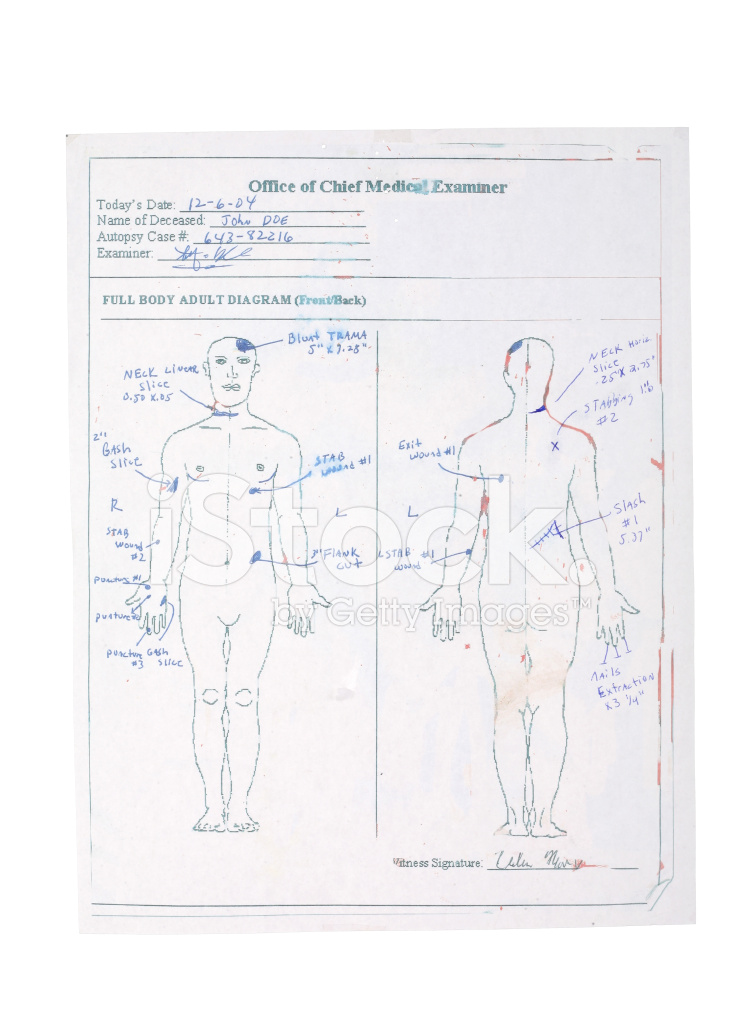 Office of Chief Medical Examiner
Today's Date: 12-6-04
Name of Deceased: John DOE
Autopsy Case #: 643-82216
Examiner:
FULL BODY ADULT DIAGRAM (Front/Back)
Blunt TRAMA
5" X 7.28"
NECK LINEAR
SLICE
0.50 X.05
2"
GASH
SLICE
STAB
wound #1
R
L
STAB
wound
#2
3" FLANK
CUT
puncture #1
puncture
puncture
#3
GASH
SLICE
NECK
SLICE
.25" X 2.75"
STABBING
#2
X
Exit
wound #1
L
SLASH
#1
5.37"
STAB #1
wound
NAILS
EXTRACTION
X3 1/4"
iStock
by Getty Images™
Witness Signature: